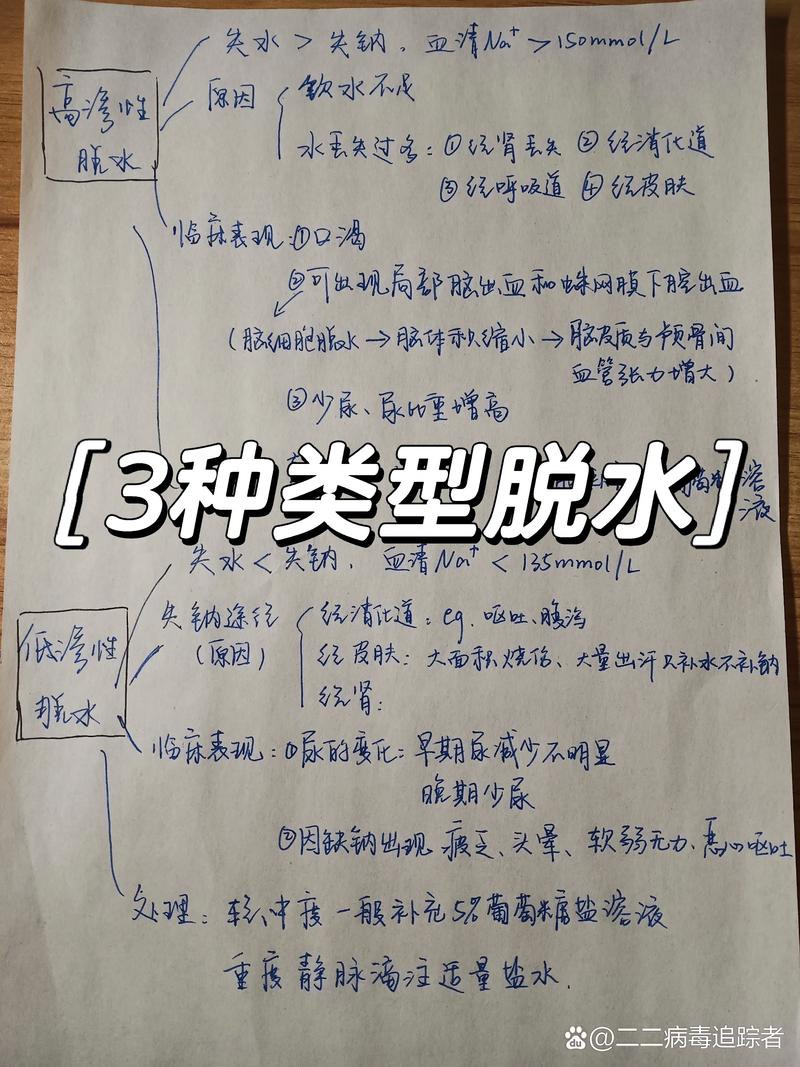 失水 > 失钠，血清Na⁺ > 150mmol/L
高渗性
脱水
原因
饮水不足
水丢失过多：①经肾丢失 ②经消化道
③经呼吸道 ④经皮肤
临床表现：①口渴
②可出现局部脑出血和蛛网膜下腔出血
(脑细胞脱水→脑体积缩小→脑皮质与颅骨间
血管张力增大)
③少尿、尿比重增高
[3种类型脱水]
溶
液
失水 < 失钠，血清Na⁺ < 135mmol/L
低渗性
脱水
失钠途径
(原因)
经消化道：eg. 呕吐、腹泻
经皮肤：大面积烧伤、大量出汗只补水不补钠
经肾：
临床表现：①尿的变化：早期尿减少不明显
晚期少尿
②因缺钠出现 疲乏、头晕、软弱无力、恶心呕吐
处理：轻、中度一般补充5%葡萄糖盐溶液
重度静脉滴注适量盐水.
Bai du @二二病毒追踪者